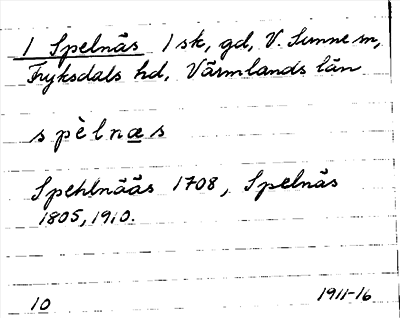 1 Spelnäs 1 sk, gd, V. Sunne sn,
Fryksdals hd, Värmlands län
s p è l n æ s
Spehlnääs 1708, Spelnäs
1805, 1910.
10 1911-16